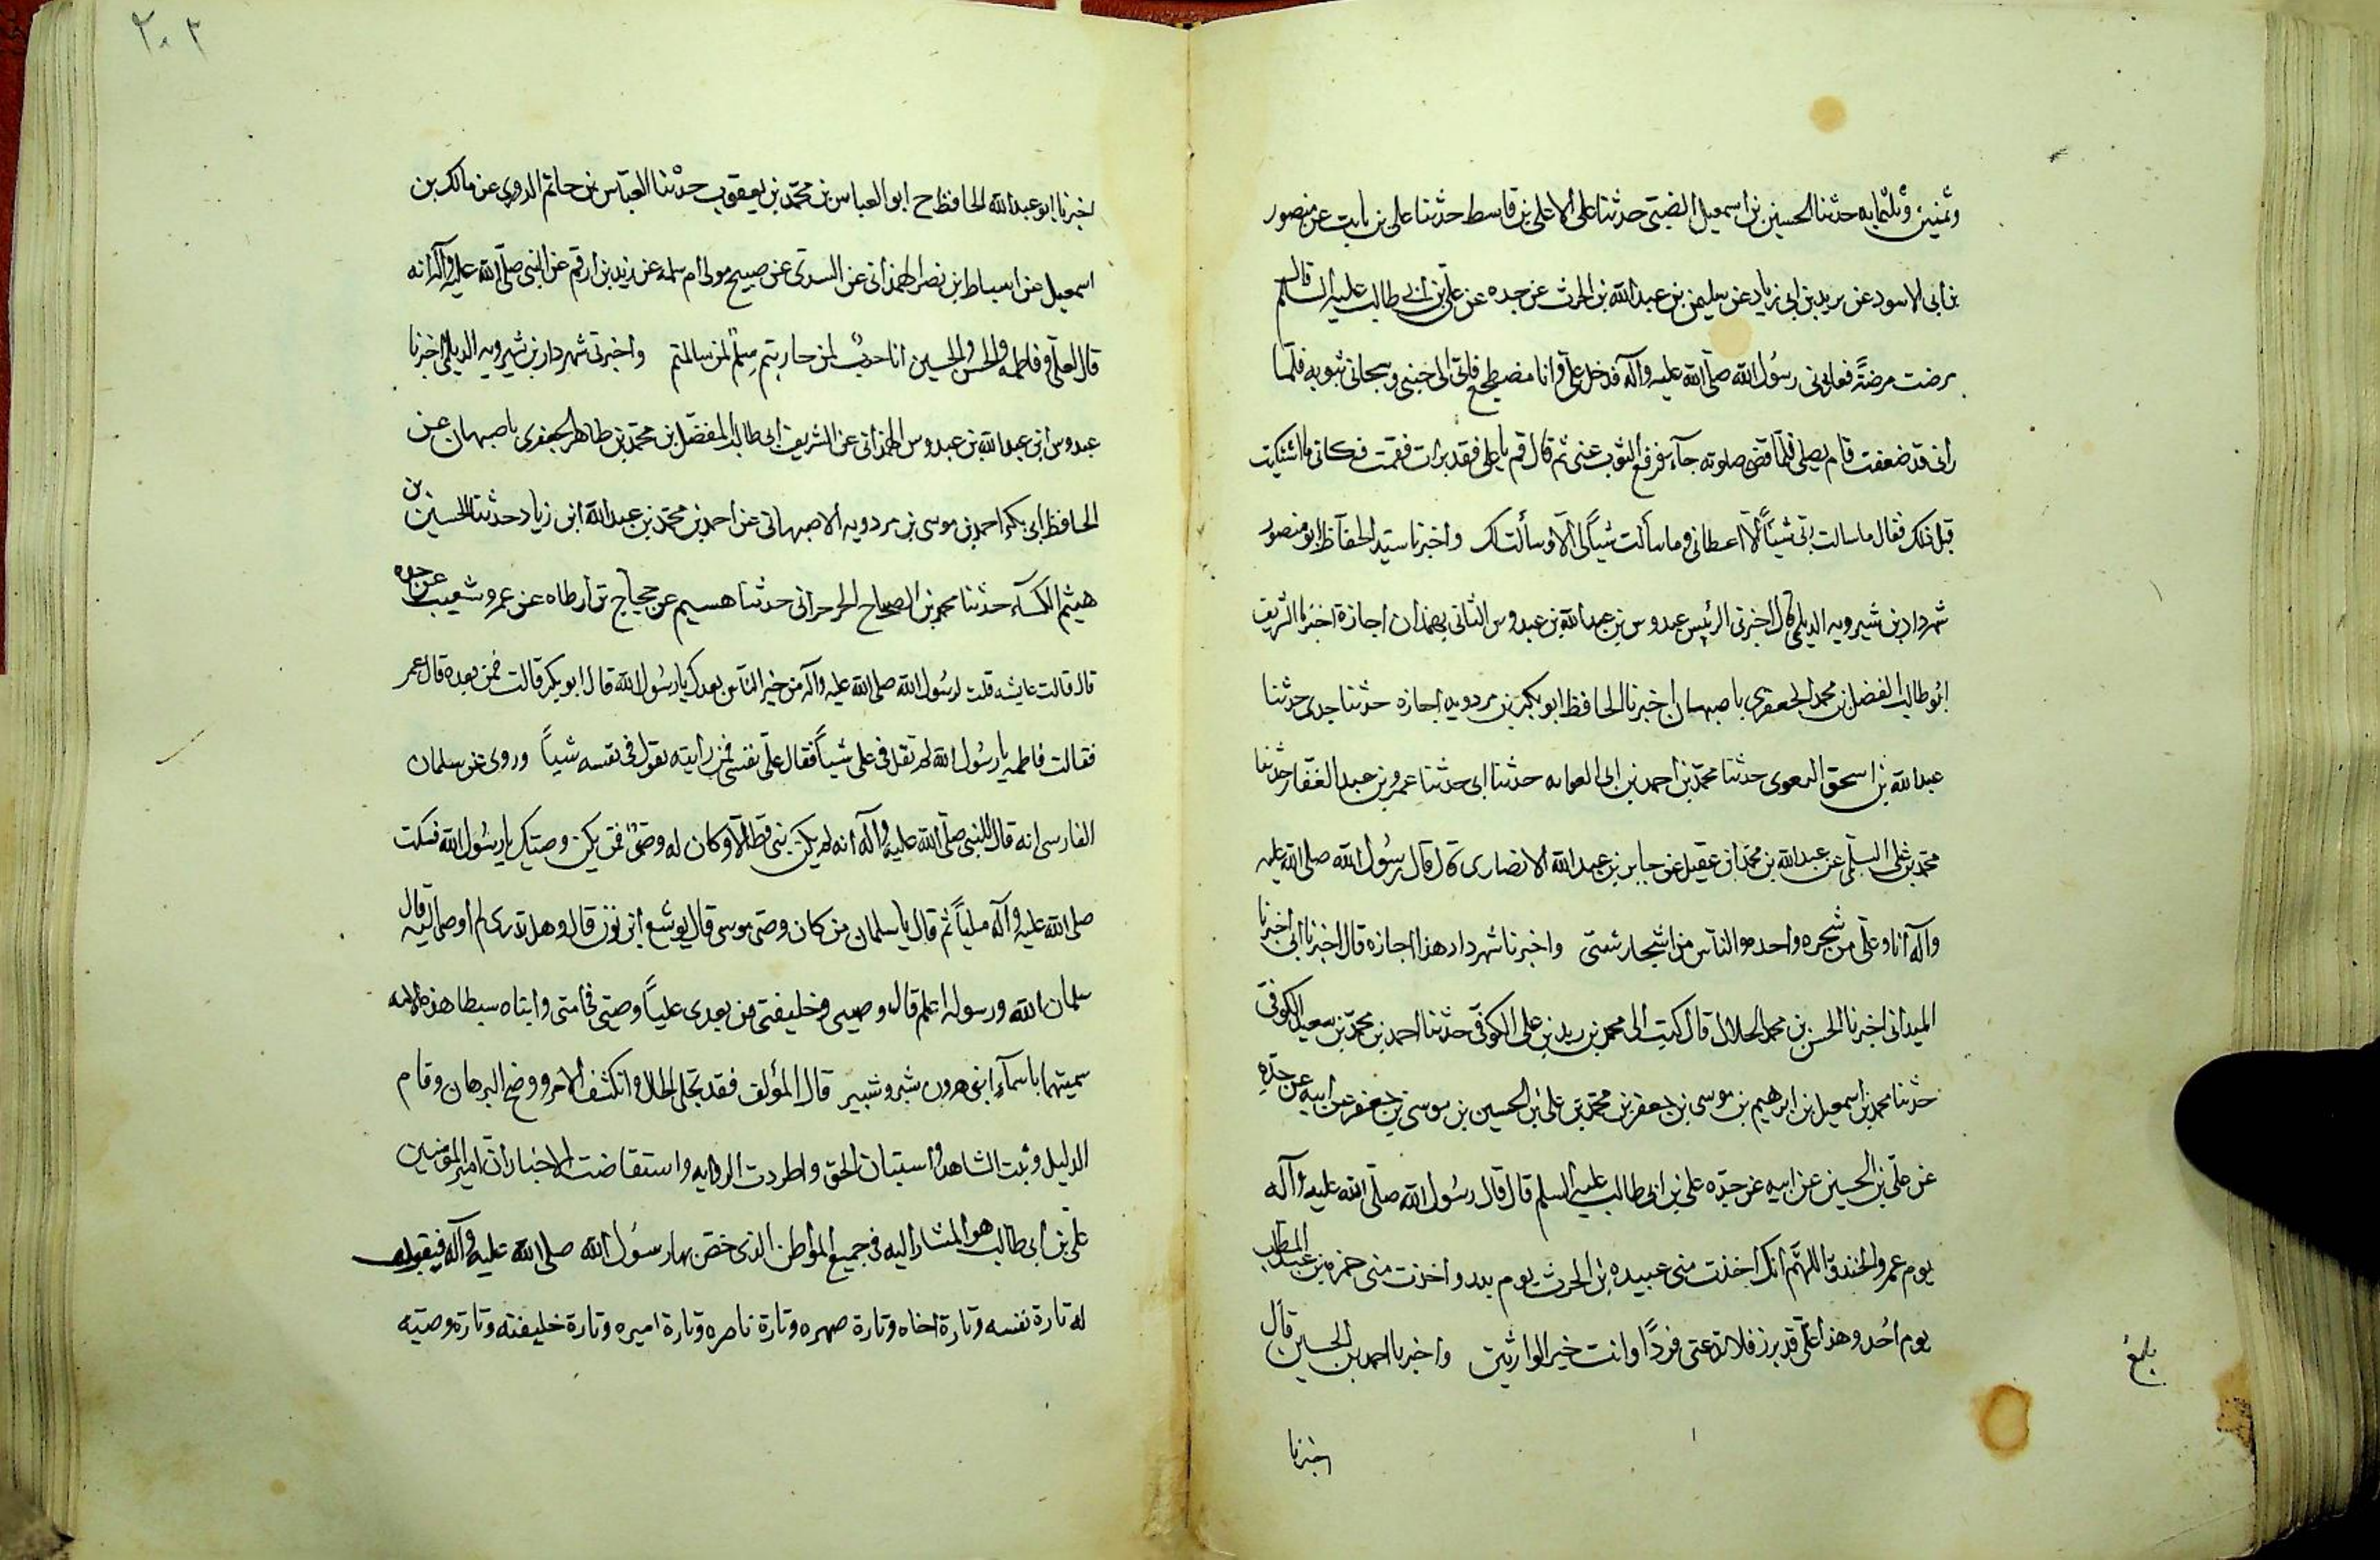 وثمنين وثلثمایه حدثنا الحسین بن اسمعیل الضبی حدثنا علی الاعلی بن قاسط حدثنا علی بن ثابت عن منصور
بن ابی الاسود عن یرید بن ابی زیاد عن سلیمن بن عبدالله بن الحرث عن جده عن علی بن ابی طالب علیه السلم قال
مرضت مرضةً فعادنی رسول الله صلی الله علیه وآله فدخل علی وانا مضطجع فاتی الی جنبی وسجانی بثوبه فلما
رانی قد ضعفت قام یصلی فلما قضی صلوته جآء فرفع الثوب عنی ثم قال قم یا علی فقد برات فقمت فکانی ما اشتکیت
قبل ذلک فقال ما سالت ربی شیئاً الا اعطانی وما سألت شیاً لی الا وسألت لک واخبرنا سید الحفاظ ابو منصور
شهردار بن شیرویه الدیلمی قال اخبرنی الرئیس عبدوس بن عبدالله بن عبدوس الثانی بهمدان اجازة اخبرنا الشریف
ابو طالب الفضل بن محمد الجعفری باصبهان اخبرنا الحافظ ابو بکر بن مردویه اجازه حدثنا جدی حدثنا
عبدالله بن اسحق البعوی حدثنا محمد بن احمد بن ابی العوامه حدثنا ابی حدثنا عمرو بن عبد الغفار حدثنا
محمد بن علی السلمی عن عبدالله بن محمد بن عقیل عن جابر بن عبدالله الانصاری قال قال رسول الله صلی الله علیه
وآله انا وعلی من شجره واحده والناس من اشجار شتی واخبرنا شهردار هذا اجازه قال اخبرنا ابی اخبرنا
المیدانی اخبرنا الحسن بن محمد الحلال قال کتب الی محمد بن زید بن علی الکوفی حدثنا احمد بن محمد بن سعید الکوفی
حدثنا محمد بن اسمعیل بن ابرهیم بن موسی بن جعفر بن محمد بن علی بن الحسین بن موسی بن جعفر عن ابیه عن جده
عن علی بن الحسین عن ابیه عن جده علی بن ابی طالب علیه السلم قال قال رسول الله صلی الله علیه وآله
یوم عمرو الخندق اللهم انک اخذت منی عبیده بن الحرث یوم بدر واخذت منی حمزه بن عبد المطلب
یوم احد وهذا علی قد برز فلا تدعنی فردًا وانت خیر الوارثین واخبرنا احمد بن الحسین قال
بلغ
اخبرنا
۲۰۳
اخبرنا ابو عبدالله الحافظ ح ابو العباس بن محمد بن یعقوب حدثنا العباس بن حاتم الدوری عن مالک بن
اسمعیل عن اسباط ابن نصر الهمدانی عن السدی عن صبیح مولی ام سلمه عن زید بن ارقم عن النبی صلی الله علیه وآله انه
قال لعلی وفاطمه والحسن والحسین انا حرب لمن حاربتم سلم لمن سالمتم واخبرنی شهردار بن شیرویه الدیلمی اخبرنا
عبدوس ابن عبدالله بن عبدوس الهمدانی عن الشریف ابی طالب المفضل بن محمد بن طاهر الجعفری باصبهان عن
الحافظ ابی بکر احمد بن موسی بن مردویه الاصبهانی عن احمد بن محمد بن عبدالله ابن زیاد حدثنا الحسین بن
هیثم الکسآء حدثنا محمد بن الصباح الجرجرانی حدثنا هسیم عن حجاج بن ارطاه عن عمرو شعیب عن جده
قال قالت عایشه قلت لرسول الله صلی الله علیه وآله من خیر الناس بعدک یا رسول الله قال ابو بکر قالت فمن بعده قال عمر
فقالت فاطمه یا رسول الله لم تقل فی علی شیاً فقال علی نفسی فمن رایته یقول فی نفسه شیاً وروی عن سلمان
الفارسی انه قال للنبی صلی الله علیه وآله انه لم یکن نبی قط الا وکان له وصی فمن یکن وصیک یا رسول الله فسکت
صلی الله علیه وآله ملیاً ثم قال یا سلمان من کان وصی موسی قال یوشع ابن نون قال وهل تدری لم اوصی الیه قال
سلمان الله ورسوله اعلم قال وصیی وخلیفتی من بعدی علیاً وصیی فی امتی وابناه سبطا هذه الامه
سمیتهما باسمآء ابنی هرون شبر وشبیر قال المؤلف فقد تجلی الحال وانکشف الامر ووضح البرهان وقام
الدلیل وثبت الشاهد واستبان الحق واطردت الروایه واستفاضت الاخبار ان امیر المؤمنین
علی بن ابی طالب هو المشار الیه فی جمیع المواطن الذی خصّ بها رسول الله صلی الله علیه وآله فیقوله
له تارة نفسه وتارة اخاه وتارة صهره وتارة ناصره وتارة امیره وتارة خلیفته وتارة وصیه